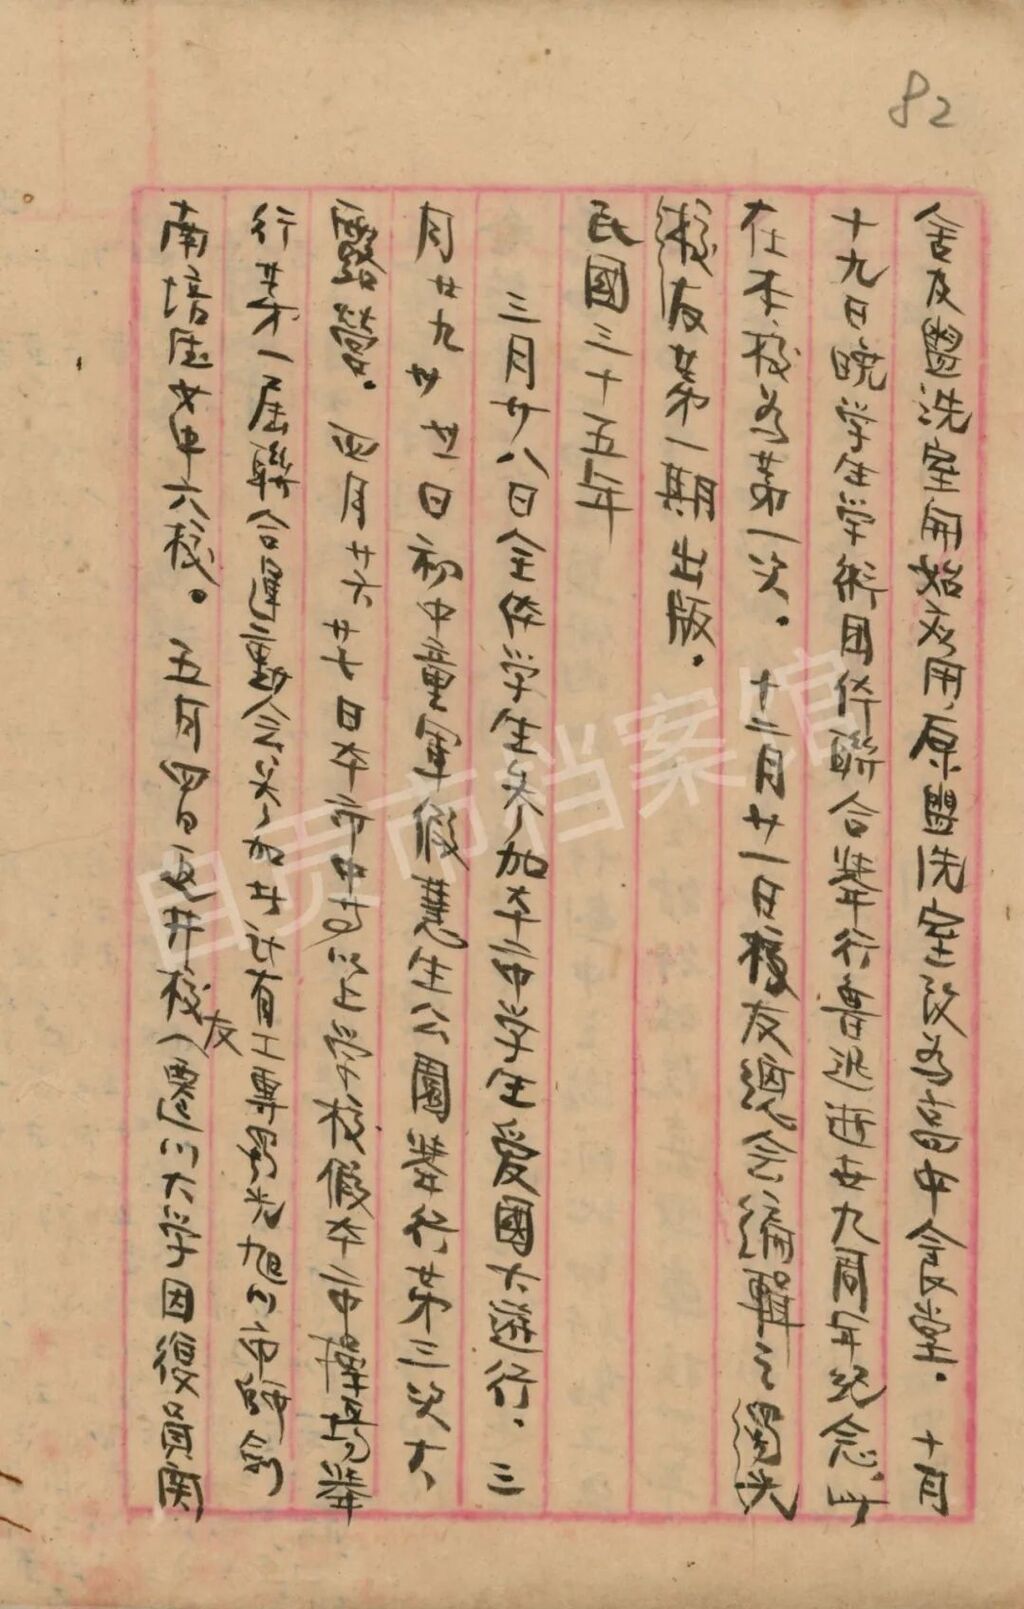 82
舍及盥洗室開始应用,原盥洗室改為高中食堂。十月
十九日晚学生学術团体聯合舉行魯迅逝世九周年紀念,此
在本校為第一次。十二月廿一日校友總会編輯之蜀光
校友第一期出版。
民國三十五年
三月廿八日全体学生参加本市学生愛國大遊行。三
月廿九卅卅一日初中童軍假慧生公園舉行第三次大
露營。四月廿六廿七日本市中等以上学校假本市操場舉
行第一屆聯合運動会,参加者計有工專蜀光旭川市師劍
南培厔女中六校。五月四日交井校友(遷川大学因復員関
自贡市档案馆